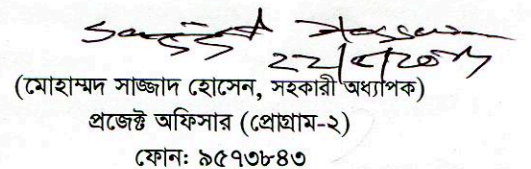 (মোহাম্মদ সাজ্জাদ হোসেন, সহকারী অধ্যাপক)
প্রজেক্ট অফিসার (প্রোগ্রাম-২)
ফোনঃ ৯৫৭৩৮৪৩